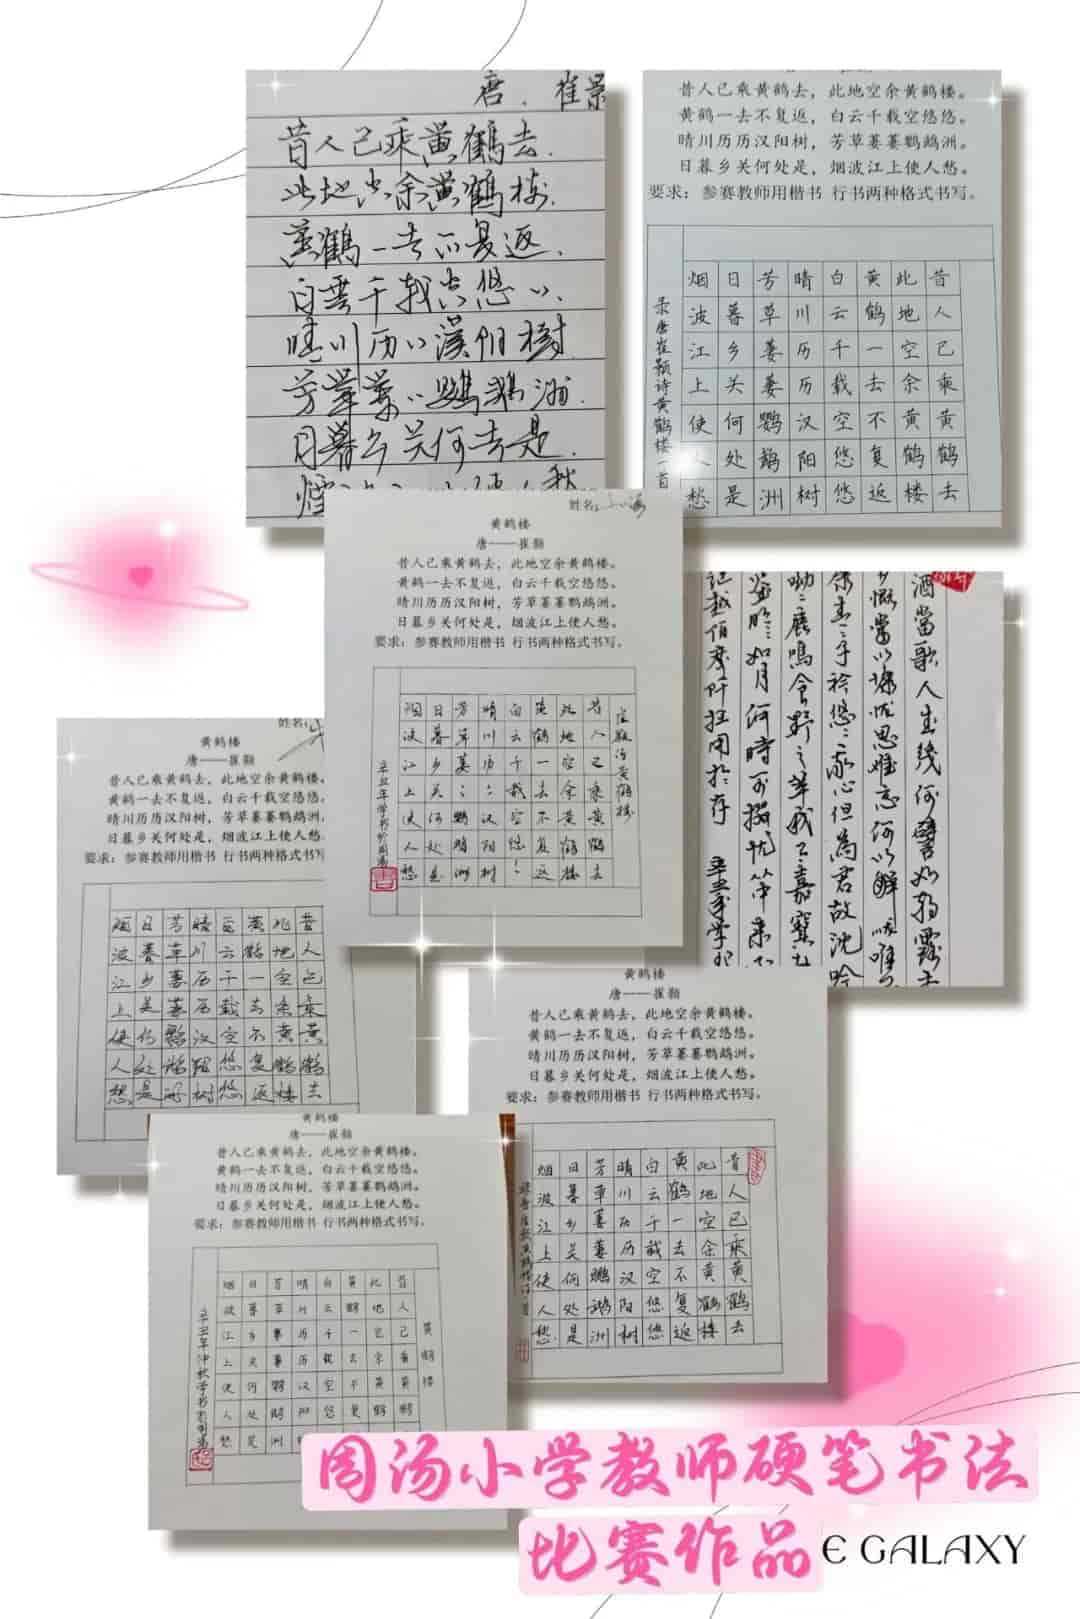 唐．崔景
昔人已乘黄鹤去．
此地空余黄鹤楼．
黄鹤一去不复返．
白雲千载空悠〃．
晴川历〃漢阳樹
芳草萋〃鹦鹉洲．
日暮乡关何处是．
昔人已乘黄鹤去，此地空余黄鹤楼。
黄鹤一去不复返，白云千载空悠悠。
晴川历历汉阳树，芳草萋萋鹦鹉洲。
日暮乡关何处是，烟波江上使人愁。
要求：参赛教师用楷书 行书两种格式书写。
昔人已乘黄鹤去
此地空余黄鹤楼
黄鹤一去不复返
白云千载空悠悠
晴川历历汉阳树
芳草萋萋鹦鹉洲
日暮乡关何处是
烟波江上使人愁
录唐崔颢诗黄鹤楼一首
姓名：
黄鹤楼
唐——崔颢
昔人已乘黄鹤去，此地空余黄鹤楼。
黄鹤一去不复返，白云千载空悠悠。
晴川历历汉阳树，芳草萋萋鹦鹉洲。
日暮乡关何处是，烟波江上使人愁。
要求：参赛教师用楷书 行书两种格式书写。
崔颢诗黄鹤楼
昔人已乘黄鹤去
此地空余黄鹤楼
黄鹤一去不复返
白云千载空悠〃
晴川历〃汉阳树
芳草萋〃鹦鹉洲
日暮乡关何处是
烟波江上使人愁
辛丑年学书於周汤
酒當歌人生幾何譬如朝露去
慨當以慷忧思难忘何以解忧唯
青青子衿悠悠我心但為君故沈吟
呦呦鹿鳴食野之苹我有嘉賓
鼓瑟
明明如月何時可掇忧从中来不
辛丑年学书
姓名：
黄鹤楼
唐——崔颢
昔人已乘黄鹤去，此地空余黄鹤楼。
黄鹤一去不复返，白云千载空悠悠。
晴川历历汉阳树，芳草萋萋鹦鹉洲。
日暮乡关何处是，烟波江上使人愁。
要求：参赛教师用楷书 行书两种格式书写
昔人已乘黄鹤去
此地空余黄鹤楼
黄鹤一去不复返
白云千载空悠悠
晴川历历汉阳树
芳草萋萋鹦鹉洲
日暮乡是何处是
烟波江上使人愁
黄鹤楼
唐——崔颢
昔人已乘黄鹤去，此地空余黄鹤楼。
黄鹤一去不复返，白云千载空悠悠。
晴川历历汉阳树，芳草萋萋鹦鹉洲。
日暮乡关何处是，烟波江上使人愁。
要求：参赛教师用楷书 行书两种格式书写。
昔人已乘黄鹤去
此地空余黄鹤楼
黄鹤一去不复返
白云千载空悠悠
晴川历历汉阳树
芳草萋萋鹦鹉洲
日暮乡关何处是
烟波江上使人愁
黄鹤楼
唐——崔颢
昔人已乘黄鹤去，此地空余黄鹤楼。
黄鹤一去不复返，白云千载空悠悠。
晴川历历汉阳树，芳草萋萋鹦鹉洲。
日暮乡关何处是，烟波江上使人愁。
要求：参赛教师用楷书 行书两种格式书写。
黄鹤楼
昔人已乘黄鹤
此地空余黄鹤
黄鹤一去不复
白云千载空悠
晴川历历汉阳
芳草萋萋鹦鹉洲
日暮乡关何处是
烟波江上使人愁
辛丑年仲秋学书於周汤
周汤小学教师硬笔书法
比赛作品
E GALAXY